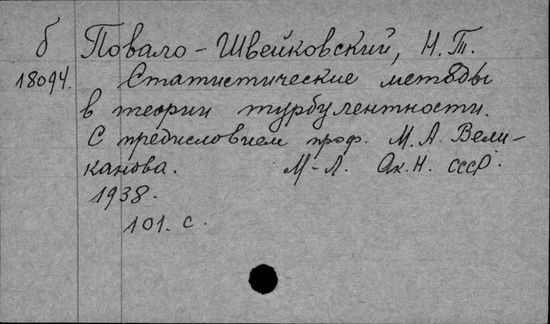 б Повало-Швейковский, Н.Т.
18094. Статистические методы
в теории турбулентности.
С предисловием проф. М.А. Вели-
канова. М-Л. Ак.Н. СССР.
1938.
101. с.